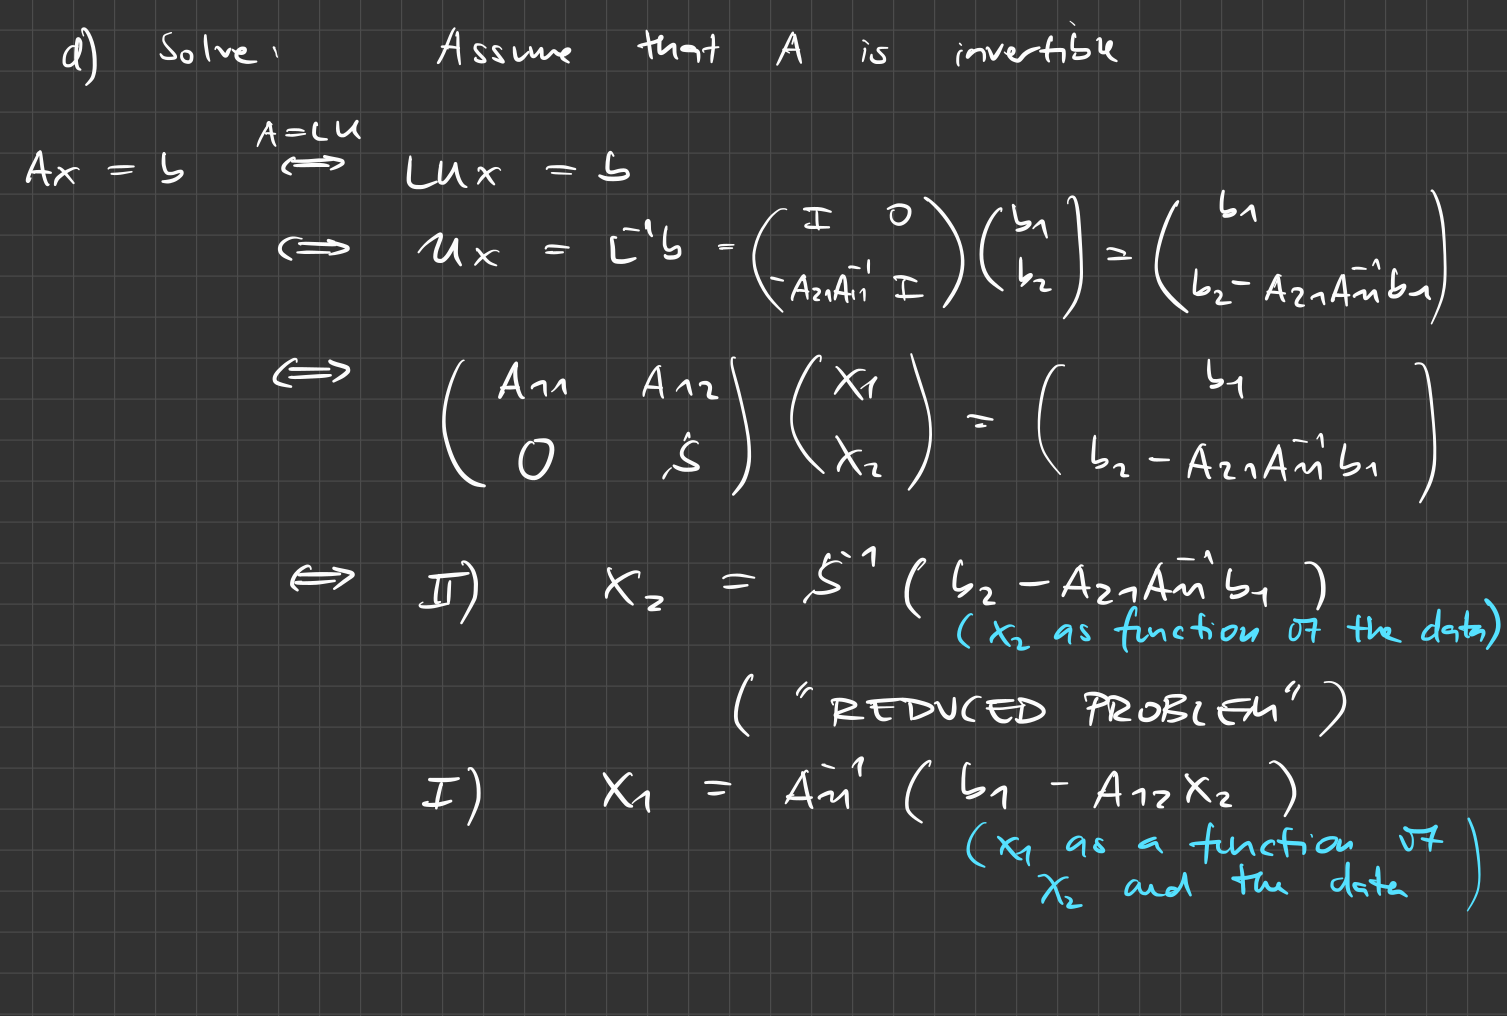 d) Solve: Assume that A is invertible
A = LU
Ax = b ⟺ LUx = b
⟺ Ux = L⁻¹b = ( I 0 ; -A₂₁A₁₁⁻¹ I ) ( b₁ ; b₂ ) = ( b₁ ; b₂ - A₂₁A₁₁⁻¹b₁ )
⟺ ( A₁₁ A₁₂ ; 0 S ) ( x₁ ; x₂ ) = ( b₁ ; b₂ - A₂₁A₁₁⁻¹b₁ )
⟺ II) x₂ = S⁻¹ ( b₂ - A₂₁A₁₁⁻¹b₁ )
( x₂ as function of the data)
( "REDUCED PROBLEM" )
I) x₁ = A₁₁⁻¹ ( b₁ - A₁₂x₂ )
( x₁ as a function of
x₂ and the data )